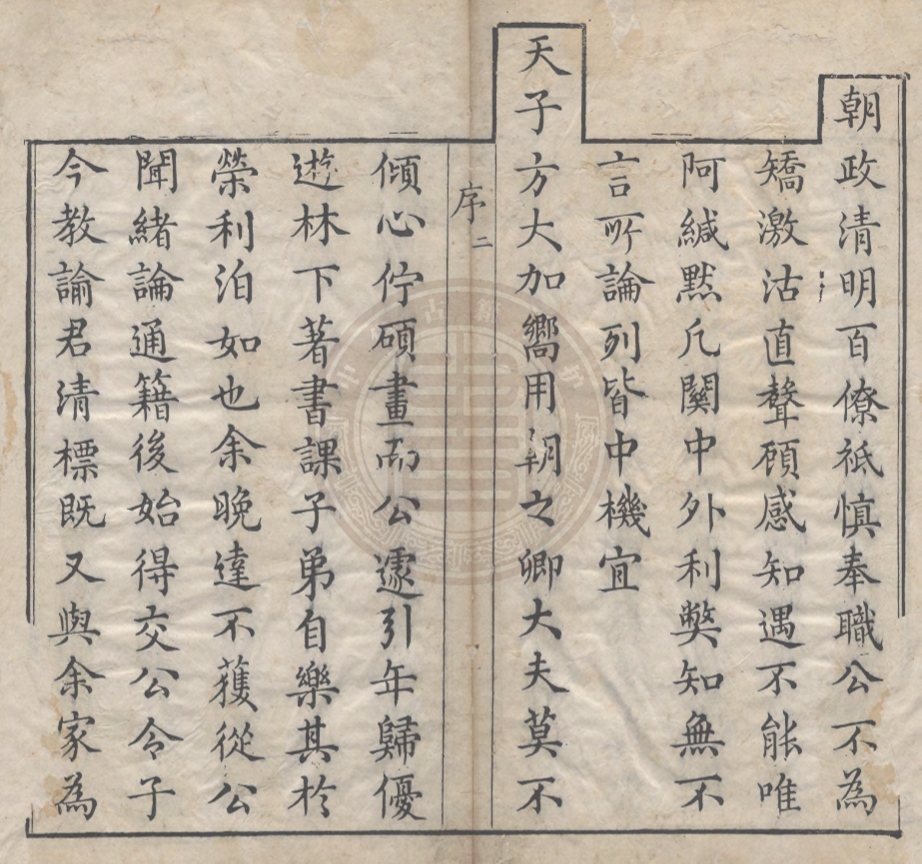 朝政清明百僚祗慎奉職公不為
矯激沽直聲顧感知遇不能唯
阿緘默凡關中外利弊知無不
言所論列皆中機宜
天子方大加嚮用朝之卿大夫莫不
序 二
傾心佇碩畫而公遽引年歸優
遊林下著書課子弟自樂其於
榮利泊如也余晚達不獲從公
聞緒論通籍後始得交公令子
今教諭君清標既又與余家為